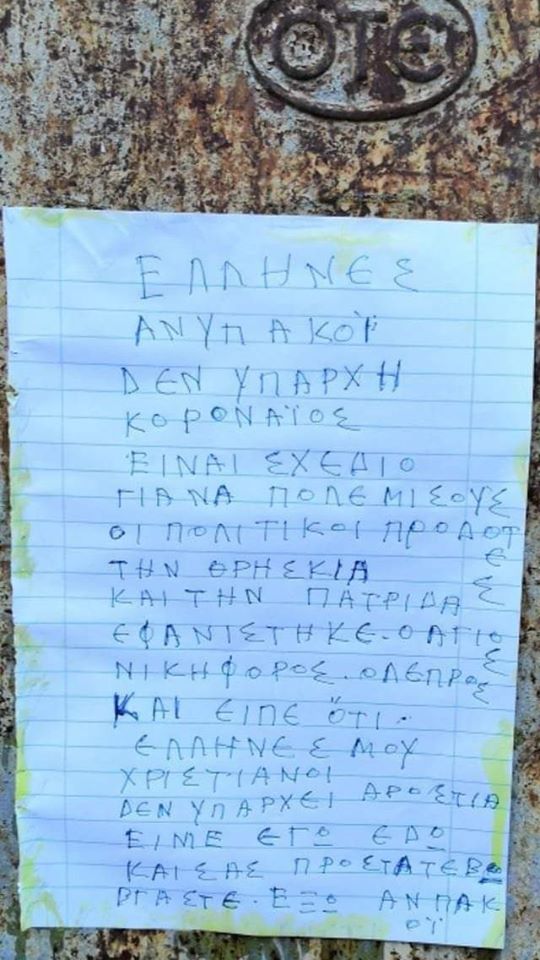 ΟΤΕ
ΕΛΛΗΝΕΣ
ΑΝΥΠΑΚΟΪ
ΔΕΝ ΥΠΑΡΧΗ
ΚΟΡΟΝΑΪΟΣ
ΕΙΝΑΙ ΣΧΕΔΙΟ
ΓΙΑ ΝΑ ΠΟΛΕΜΙΣΟΥΣ
ΟΙ ΠΟΛΙΤΙΚΟΙ ΠΡΟΔΟΤΕΣ
ΤΗΝ ΘΡΗΣΚΙΑ
ΚΑΙ ΤΗΝ ΠΑΤΡΙΔΑ
ΕΦΑΝΙΣΤΗΚΕ. Ο ΑΓΙΟΣ
ΝΙΚΗΦΟΡΟΣ. Ο ΛΕΠΡΟΣ
ΚΑΙ ΕΙΠΕ ΌΤΙ.
ΕΛΛΗΝΕΣ ΜΟΥ
ΧΡΙΣΤΙΑΝΟΙ
ΔΕΝ ΥΠΑΡΧΕΙ ΑΡΟΣΤΙΑ
ΕΙΜΕ ΕΓΩ ΕΔΩ
ΚΑΙ ΣΑΣ ΠΡΟΣΤΑΤΕΒΩ
ΒΓΑΣΤΕ. ΕΞΩ ΑΝΠΑΚΟΪ